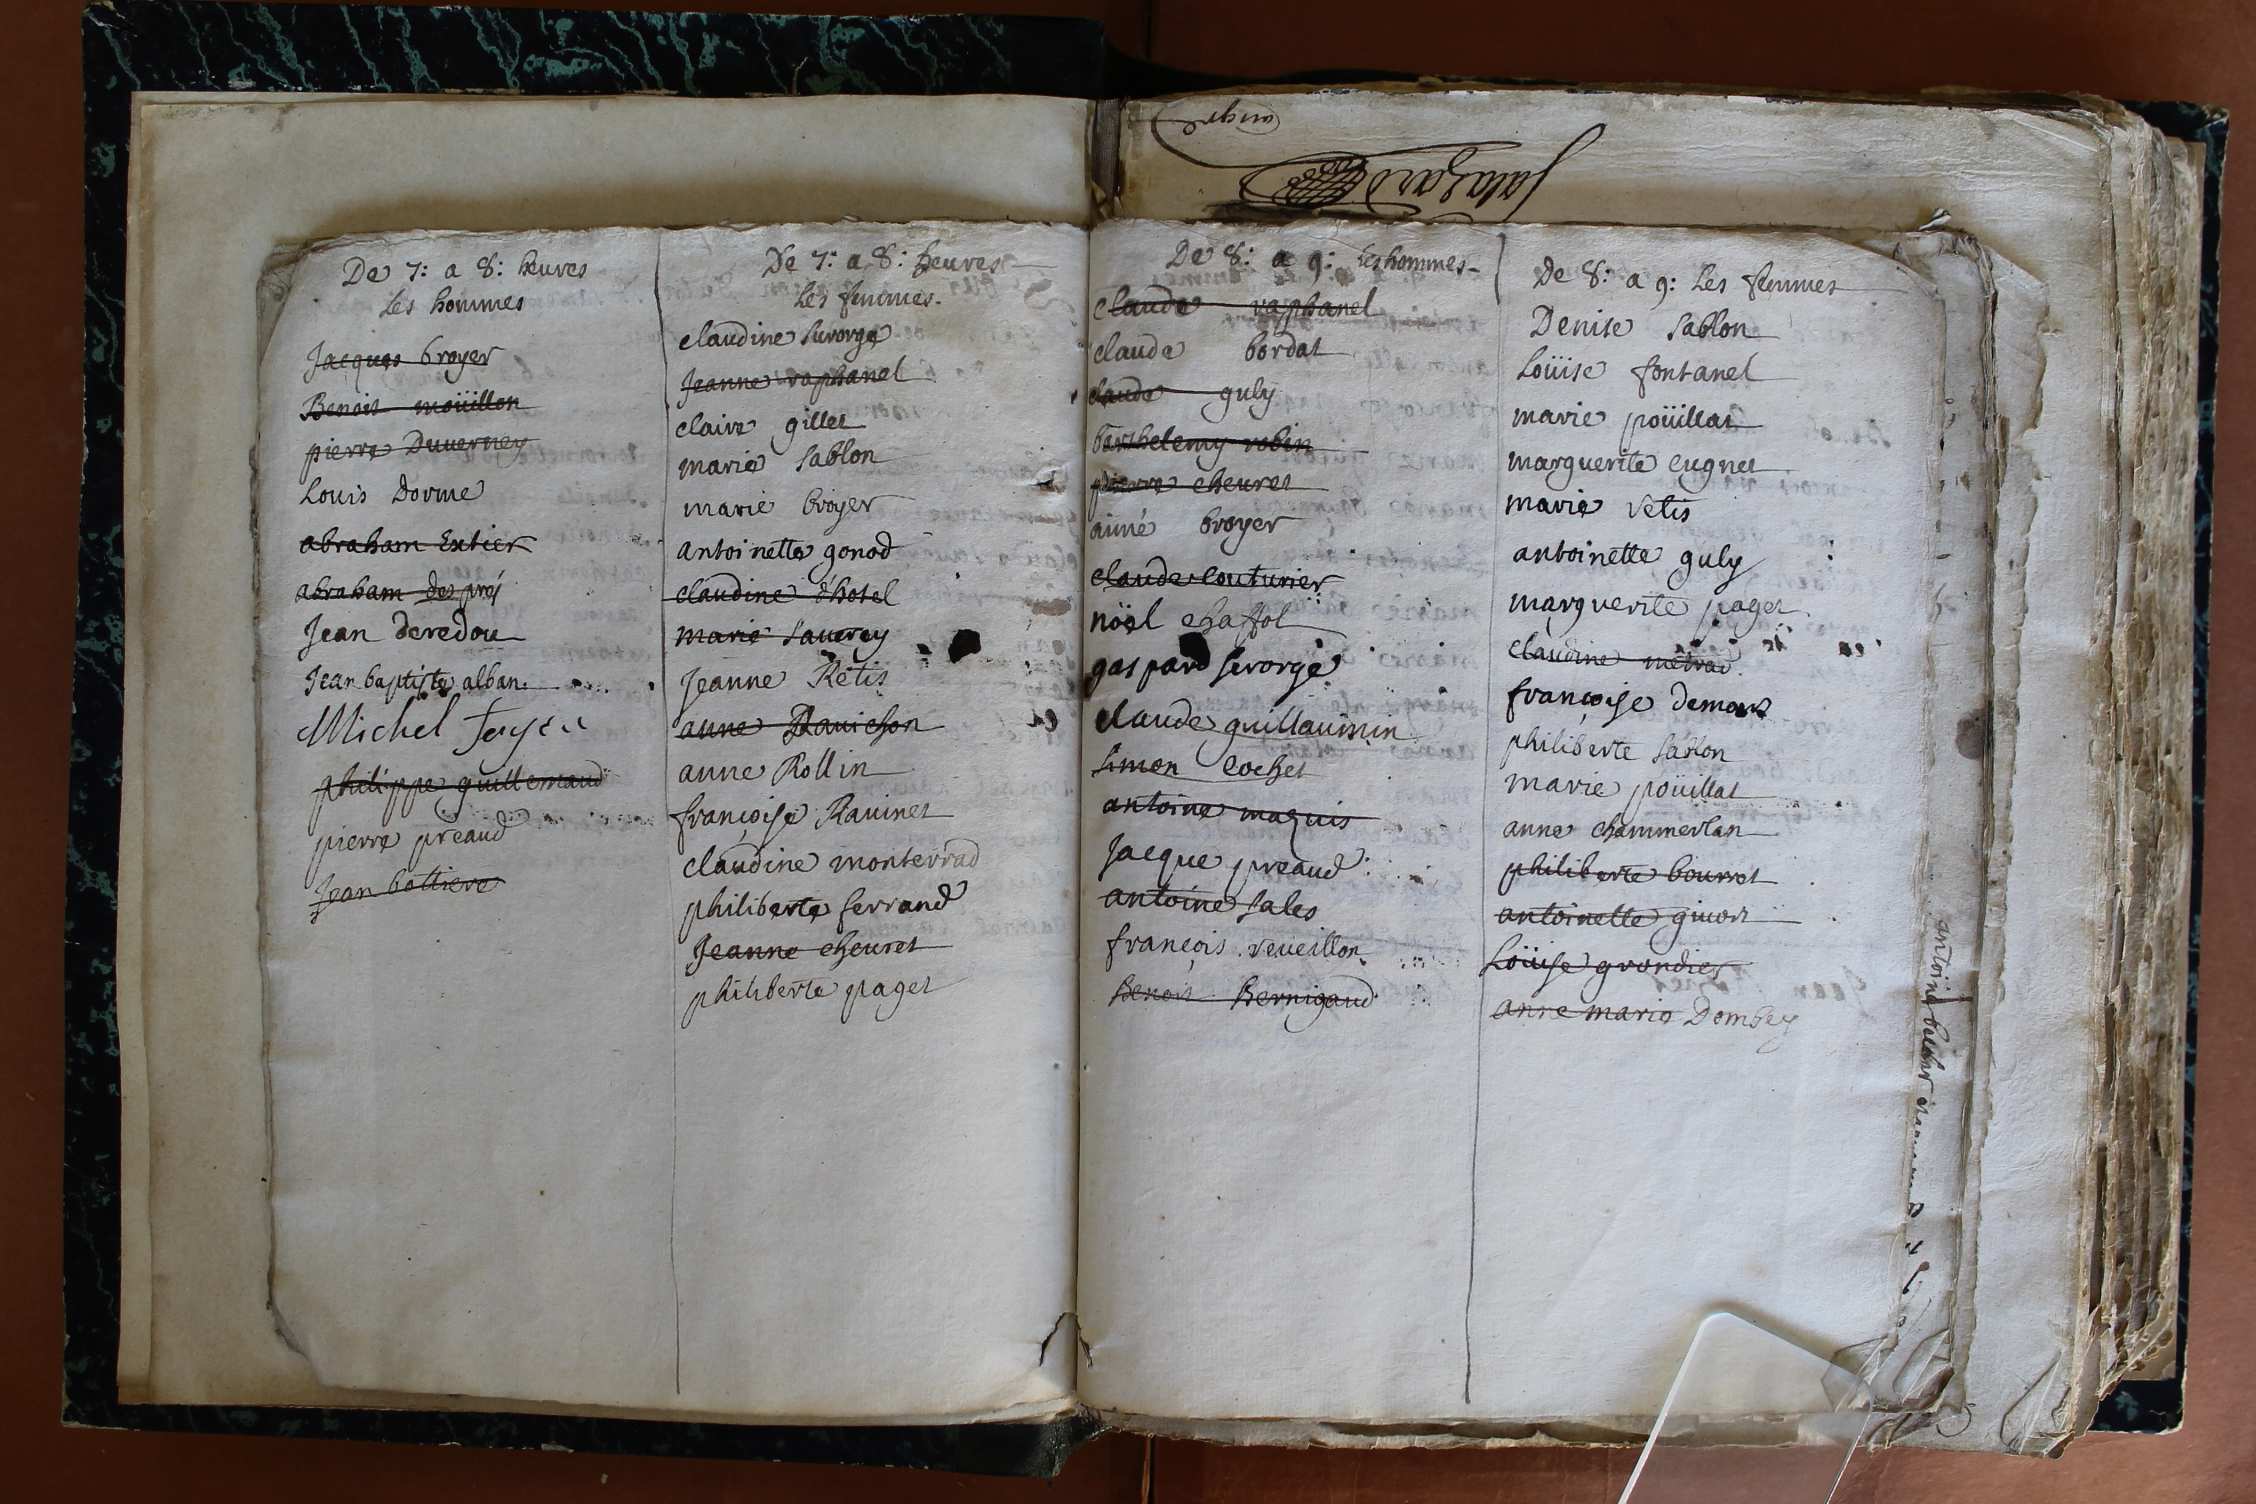 De 7: a 8: heures
Les hommes
Jacques broyer
Benoit moüillon
pierre Duverney
Louis Dorme
abraham Extier
abraham des préj
Jean deredou
Jean baptiste alban
Michel
philippe guillemaud
pierre preaud
Jean bottiere
De 7: a 8: heures
Les femmes
claudine surorge
Jeanne raphanel
claire gillet
marie sablon
marie broyer
antoinette gonod
claudine d'hotel
marie sauvey
Jeanne Retis
anne Ravichon
anne Rollin
françoise Ravinet
claudine monterrad
philiberte ferrand
Jeanne cheuret
philiberte paget
Salazard
De 8: a 9: Les hommes
claude raphanel
claude bordat
claude guly
barthelemy robin
pierre cheuret
aimé broyer
claude couturier
nöel chaffol
gaspard serorge
claude guillaumin
simon cochet
antoine maquis
Jacque preaud
antoine sales
françois reveillon
Benoit Bernigaud
De 8: a 9: Les femmes
Denise sablon
Loüise fontanel
marie poüillat
marguerite eugnet
marie retis
antoinette guly
marguerite paget
claudine metrad
françoise demont
philiberte sablon
marie poüillat
anne chammerlan
philiberte bourret
antoinette givort
Loüise grondier
anne marie Dombey
antoine